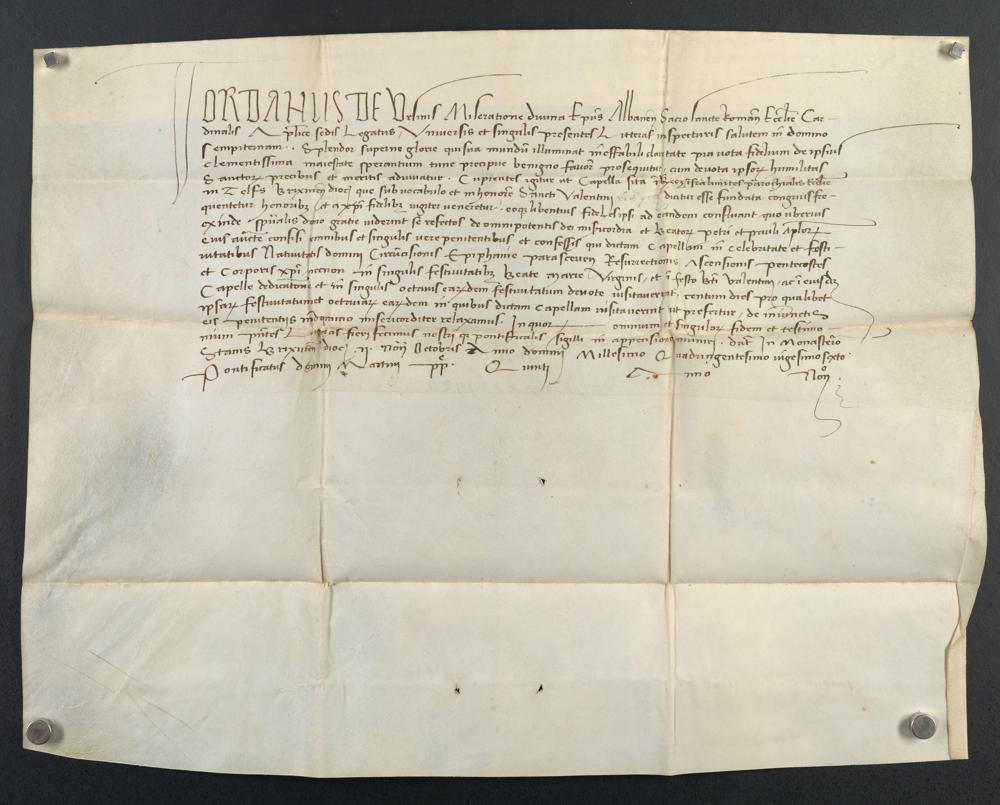 IORDANUS DE Ursinis Miseratione divina Ep̄us Albanen̄ Sacrosancte Roman̄ Eccl̄ie Car-
dinalis Ap̄lice sedis Legatus Universis et singulis presentes Litteras inspecturis salutem in domino
sempiternam. Splendor superne glorie qui sua mundū illuminat ineffabili claritate pia vota fidelium de ipsius
clementissima maiestate sperantium tunc precipue benigno favore prosequitur, cum devota ipsorꝝ humilitas
Sanctorꝝ precibus et meritis adiuvatur. Cupientes igitur ut Capella sita infra limites parrochialis Eccl̄ie
in Telfs Brixinen̄ dioc̄ que sub vocabulo et in honore Sancti Valentini dicitur esse fundata congruis fre-
quentetur honoribꝫ et a xp̄i fidelibꝫ iugiter veneretur. eoqꝫ libentius fideles ipsi ad eandem confluant quo uberius
exinde sp̄ualis dono gratie viderint se refectos de omnipotentis dei misericordia et Beatorꝝ petri et pauli aplorꝝ
eius auct̄te confisi omnibus et singulis vere penitentibus et confessis qui dictam Capellam in celebritate et festi-
vitatibus Nativitatis domini Circūcisionis Epiphanie parasceven Resurrectionis Ascensionis Pentecostes
et Corporis xp̄i necnon in singulis festivitatibꝫ Beate Marie Virginis, et ī festo bt̄i Valentini, ac ī eiusdꝫ
Capelle dedicatione et in singulis octavis earꝝdem festivitatum devote visitaverint, centum dies pro qualibet
ipsarꝝ festivitatum et octavarꝝ earꝝdem in quibus dictam Capellam visitaverint ut prefertur, de iniunctis
eis penitentiis in domino misericorditer relaxamus. In quorꝝ omnium et singulorꝝ fidem et testimo-
nium pn̄tes Litteras fieri fecimus nostri qꝫ pontificalis sigilli in appensione muniri. dat̄ In Monasterio
Stams Brixinen̄ dioc̄ ii. Non̄ Octobris Anno domini Millesimo Quadringentesimo vigesimosexto.
Pontificatus domini Martini pp̄. Quinti Anno Non̄.